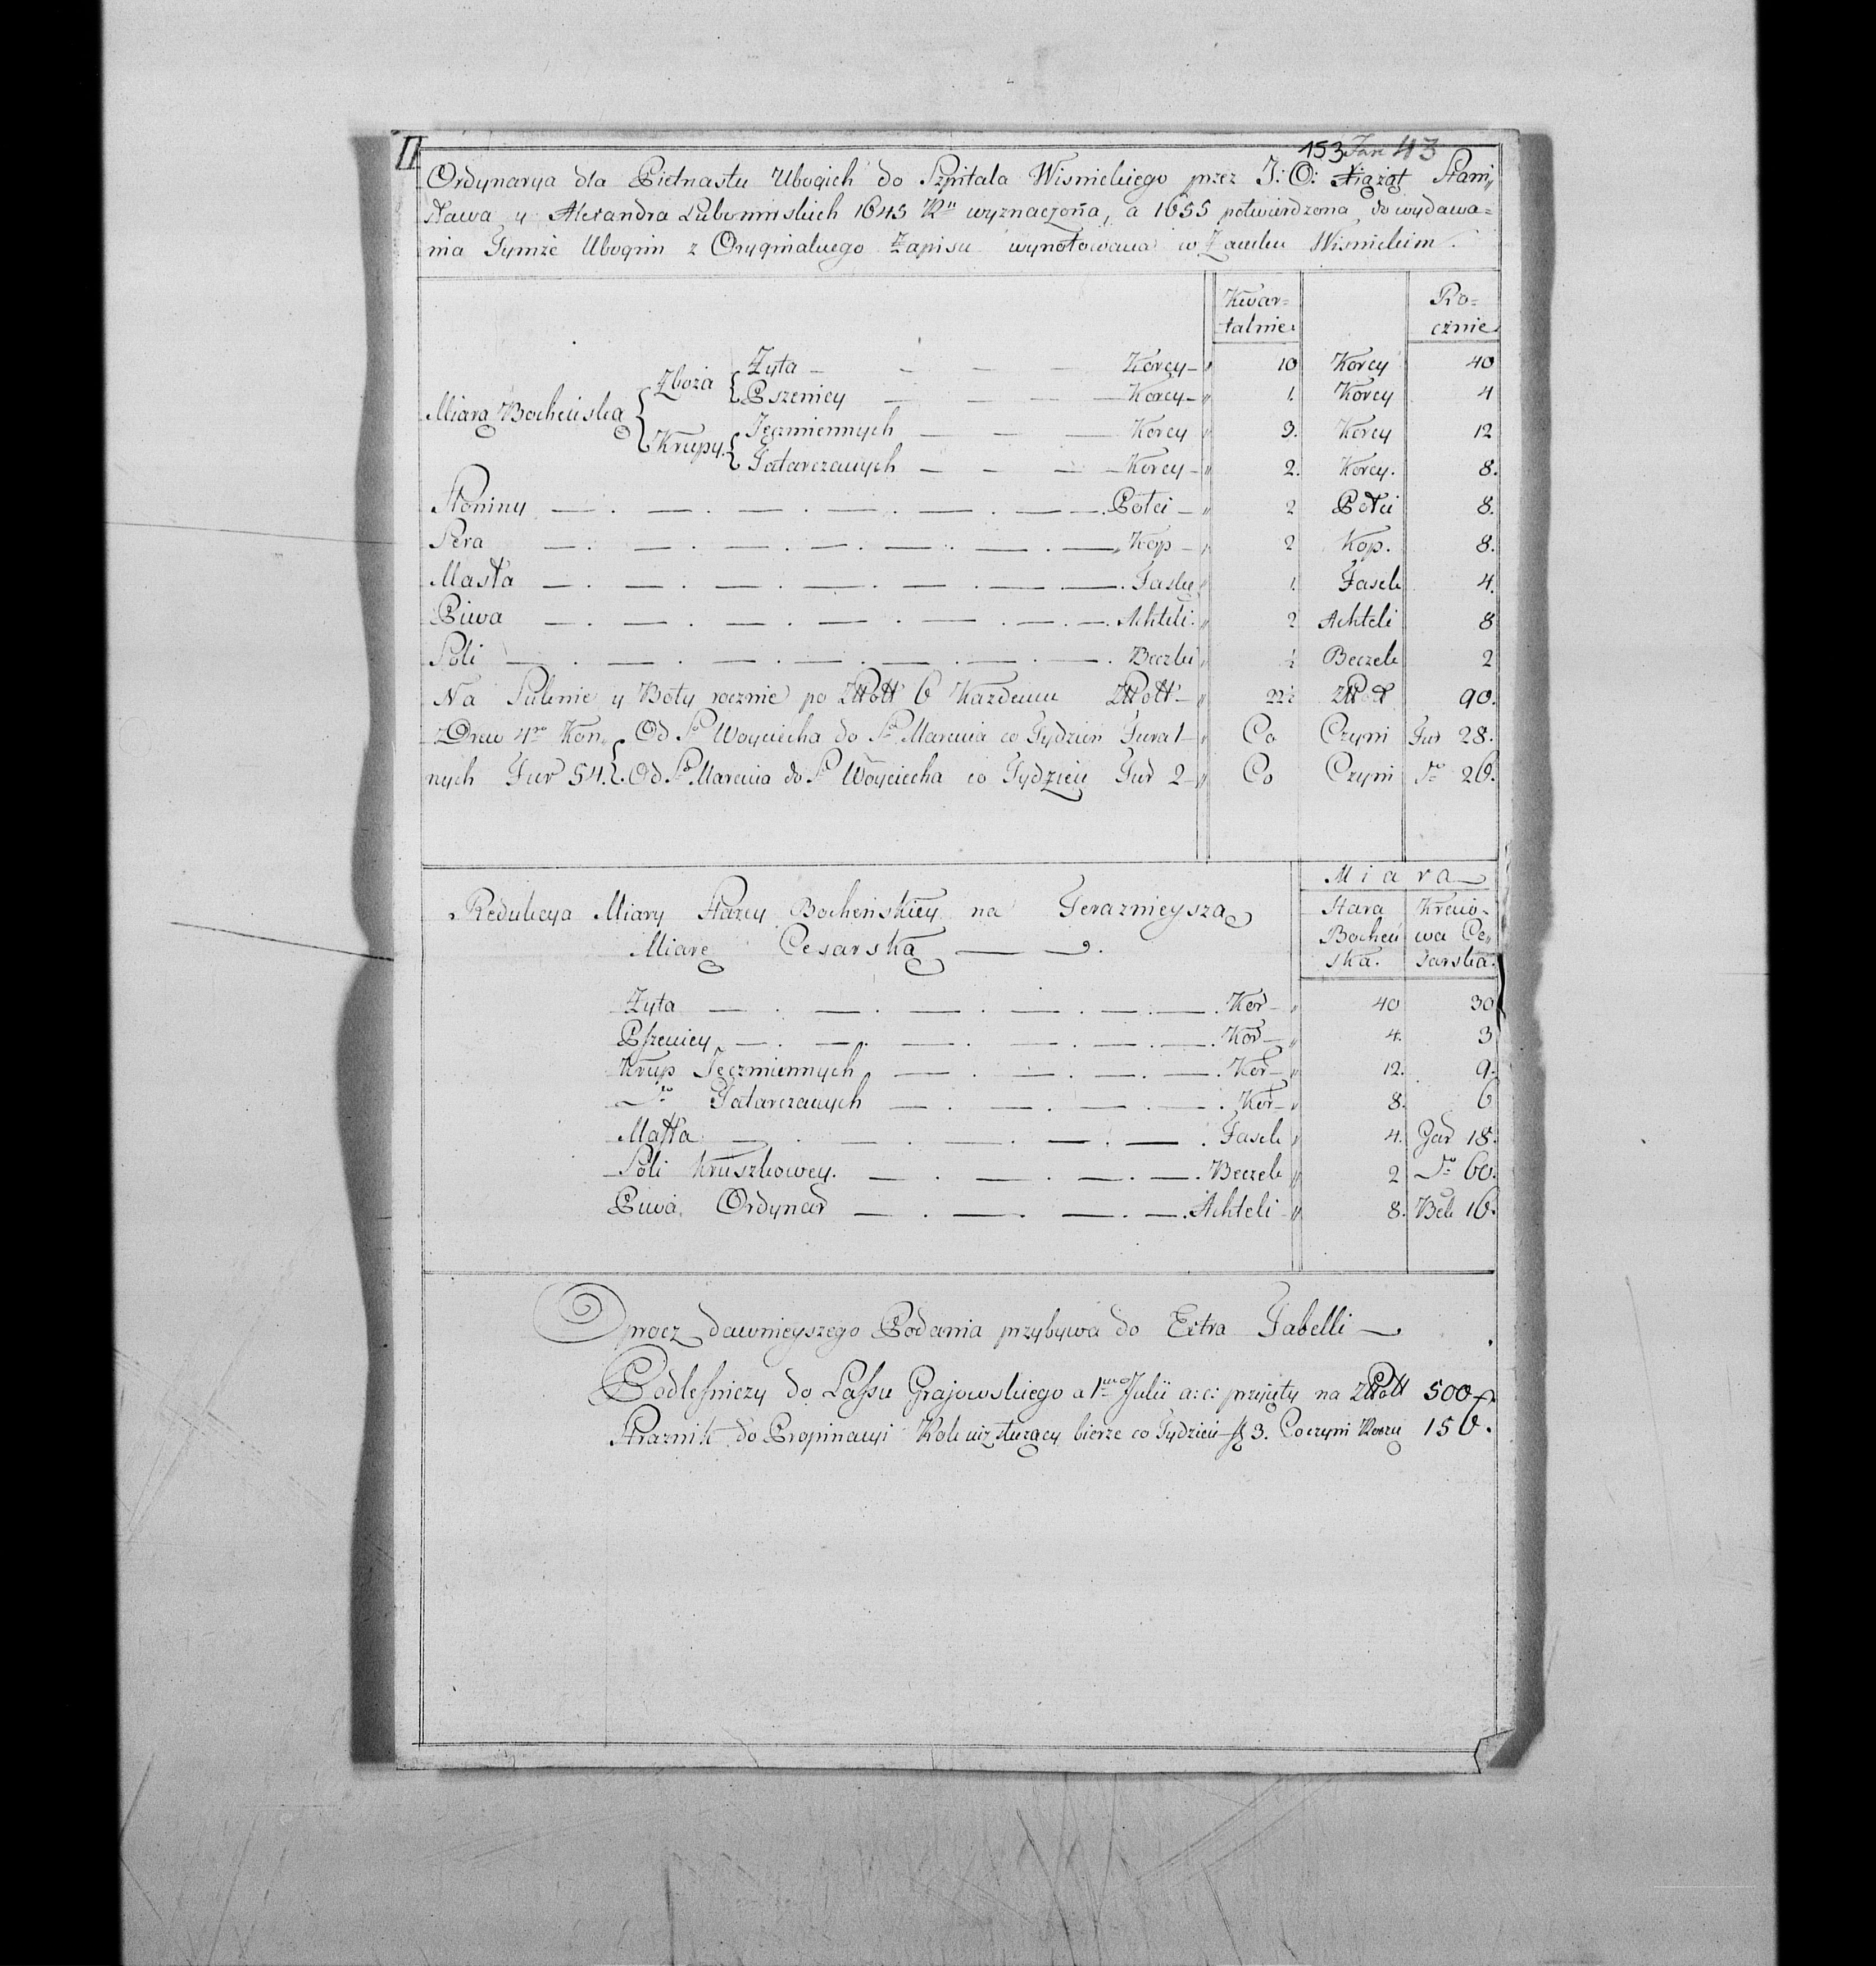 II
153 43
Ordynarya dla Pietnastu Ubogich do Szpitala Wisnickiego przez J: O: Xiążąt Stani„
sława y Alexandra Lubomirskich 1645 Ru wyznaczona, a 1655 potwierdzona, do wydawa=
nia Tymże Ubogim z Oryginalnego Zapisu wynotowana w Zamku Wisnickim.
Kwar= Ro=
talnie. cznie.
Zyta — Korcy 10 Korcy 40
Zboża
Pszenicy — Korcy 1. Korcy 4
Miarą Bocheńską
Jęczmiennych — Korcy 3. Korcy 12
Krupy.
Tatarczanych — Korcy 2. Korcy. 8.
Słoniny — Połci 2 Połci 8.
Sera — Kop 2 Kop. 8.
Masła — Faskę 1. Fasek 4.
Piwa — Achteli. 2 Achteli 8
Soli — Beczki ½ Beczek 2
Na Suknie y Boty rocznie po ZłPolł 6 Każdemu ZłPolł 22½ ZłPol 90.
Drew 4ro Kon„ Od So Woyciecha do So Marcina co Tydzień Fura 1 Co Czyni Fur 28.
nych Fur 54. Od So Marcina do So Woyciecha co Tydzień Fur 2 Co Czyni do 26.
Miara
Redukcya Miary Starey Bocheńskiey na Teraznieyszą
Miarę Cesarską
Stara Kraio„
Bocheń wa Ce„
ska. sarska.
Zyta — Kor 40 30
Pszenicy — Kor 4. 3
Krup Jęczmiennych — Kor 12. 9.
do Tatarczanych — Kor 8. 6
Masła — Fasek 4. Gar 18.
Soli Kruszkowey. — Beczek 2 do 60.
Piwa Ordynar — Achteli 8. Bek 16.
Oprocz dawnieyszego Podania przybywa do Extra Tabelli
Podleśniczy do Lassu Grajowskiego a 1ma Julii a: c: przyięty na ZłPolł 500
Straznik do Propinacyi służący bierze co Tydzień f 3. Co czyni 156.